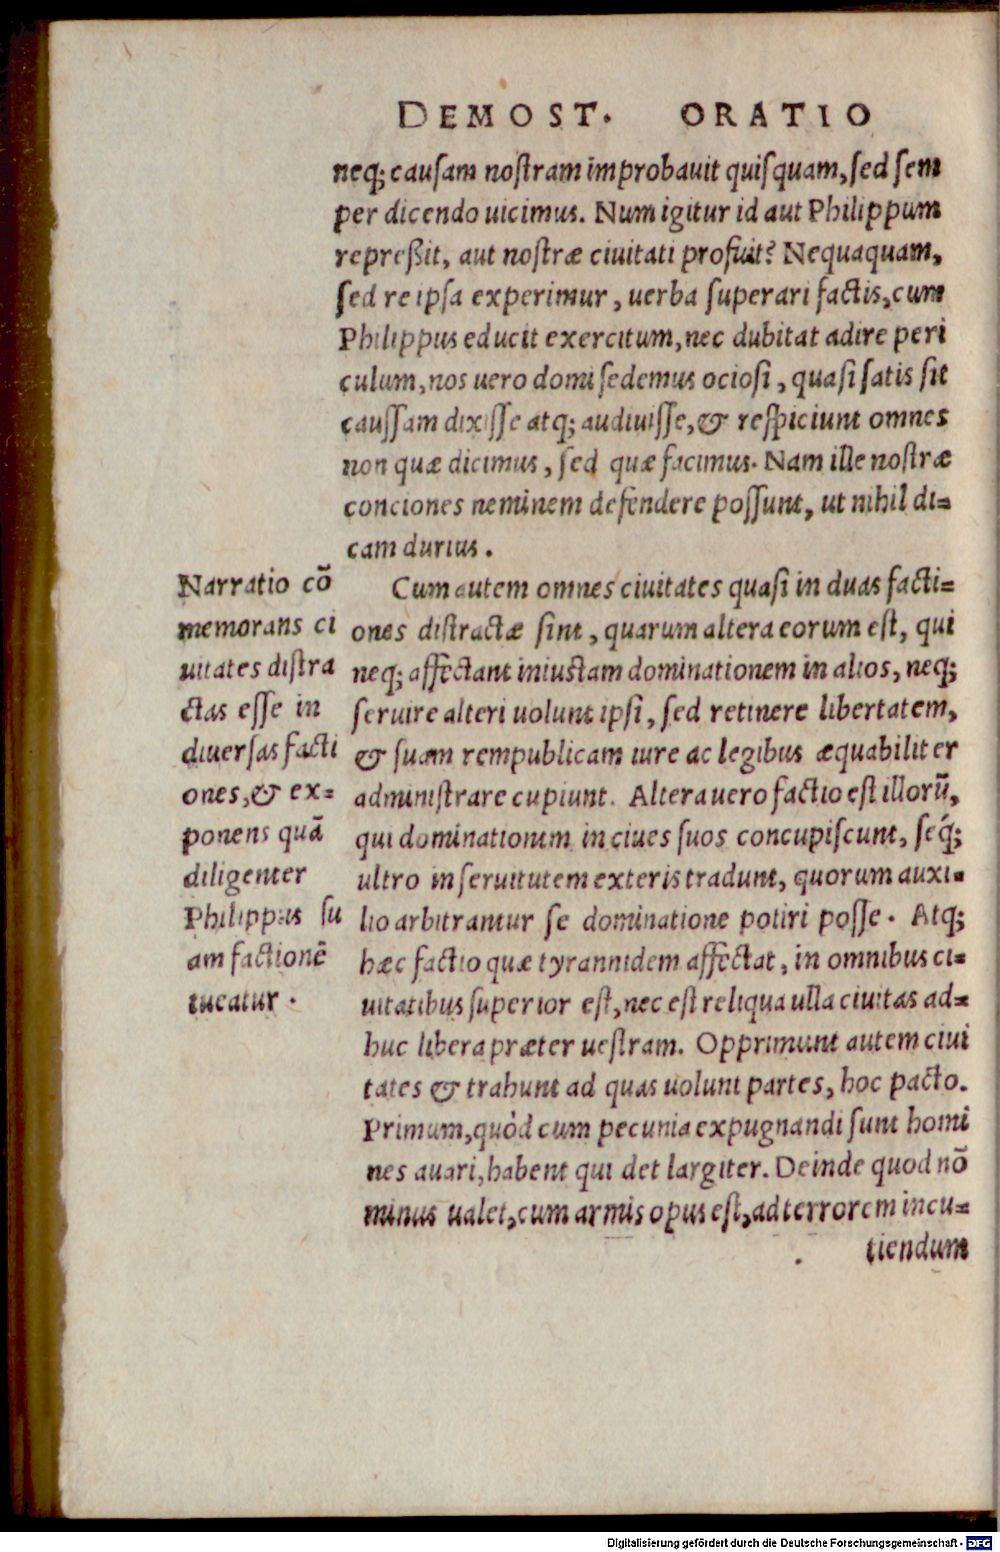 DEMOST. ORATIO
neq; causam nostram improbavit quisquam, sed sem
per dicendo uicimus. Num igitur id aut Philippum
repreßit, aut nostræ ciuitati profuit? Nequaquam,
sed re ipsa experimur, uerba superari factis, cum
Philippus educit exercitum, nec dubitat adire peri
culum, nos uero domi sedemus ociosi, quasi satis sit
caussam dixisse atq; audiuisse, & respiciunt omnes
non quæ dicimus, sed quæ facimus. Nam ille nostræ
conciones neminem defendere possunt, ut nihil di=
cam durius.
Narratio cō
memorans ci
uitates distra
ctas esse in
diuersas facti
ones, & ex=
ponens quā
diligenter
Philippus su
am factionē
tueatur.
Cum autem omnes ciuitates quasi in duas facti=
ones distractæ sint, quarum altera eorum est, qui
neq; affectant iniustam dominationem in alios, neq;
seruire alteri uolunt ipsi, sed retinere libertatem,
& suam rempublicam iure ac legibus æquabiliter
administrare cupiunt. Altera uero factio est illorū,
qui dominationem in ciues suos concupiscunt, seq́;
ultro in seruitutem exteris tradunt, quorum auxi=
lio arbitrantur se dominatione potiri posse. Atq;
hæc factio quæ tyrannidem affectat, in omnibus ci=
uitatibus superior est, nec est reliqua ulla ciuitas ad=
huc libera præter uestram. Opprimunt autem ciui
tates & trahunt ad quas uolunt partes, hoc pacto.
Primum, quòd cum pecunia expugnandi sunt homi
nes auari, habent qui det largiter. Deinde quod nō
minus ualet, cum armis opus est, ad terrorem incu=
tiendum
Digitalisierung gefördert durch die Deutsche Forschungsgemeinschaft - DFG